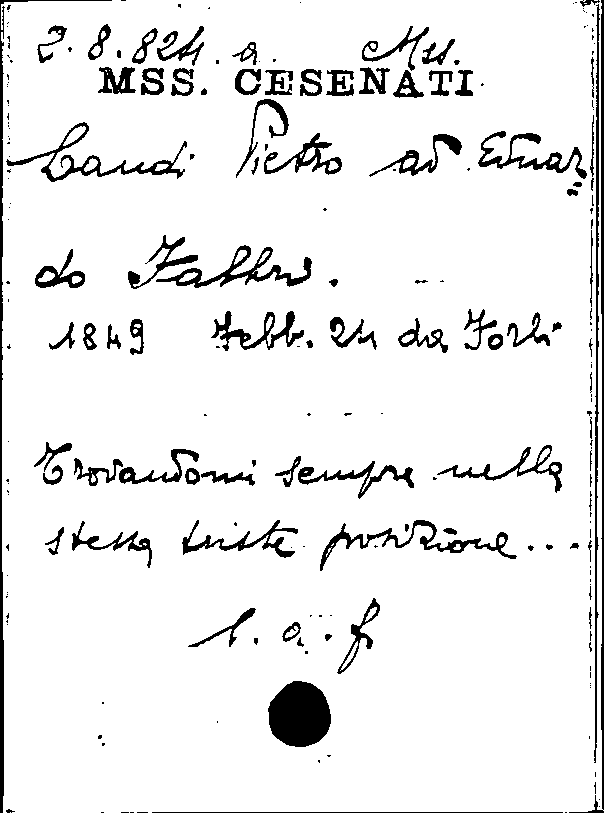 2.8.824.a. Mss.
MSS. CESENATI
Landi Pietro ad Eduar=
do Fabbri.
1849 Febb. 24 da Forlì
Trovandomi sempre nella
stessa triste posizione...
l. a. f.